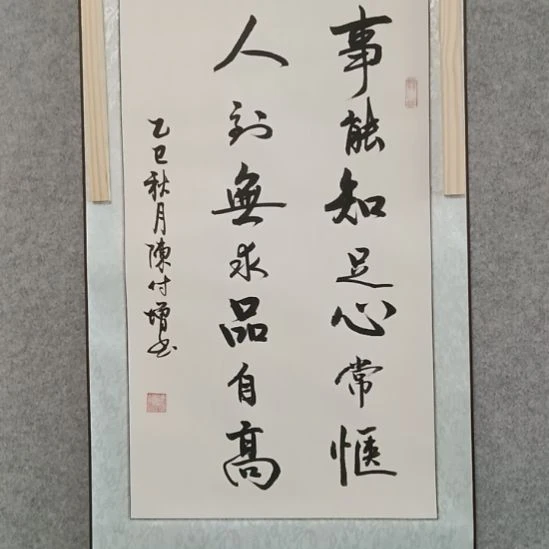 事能知足心常愜
人到無求品自高
乙巳秋月陳付增书